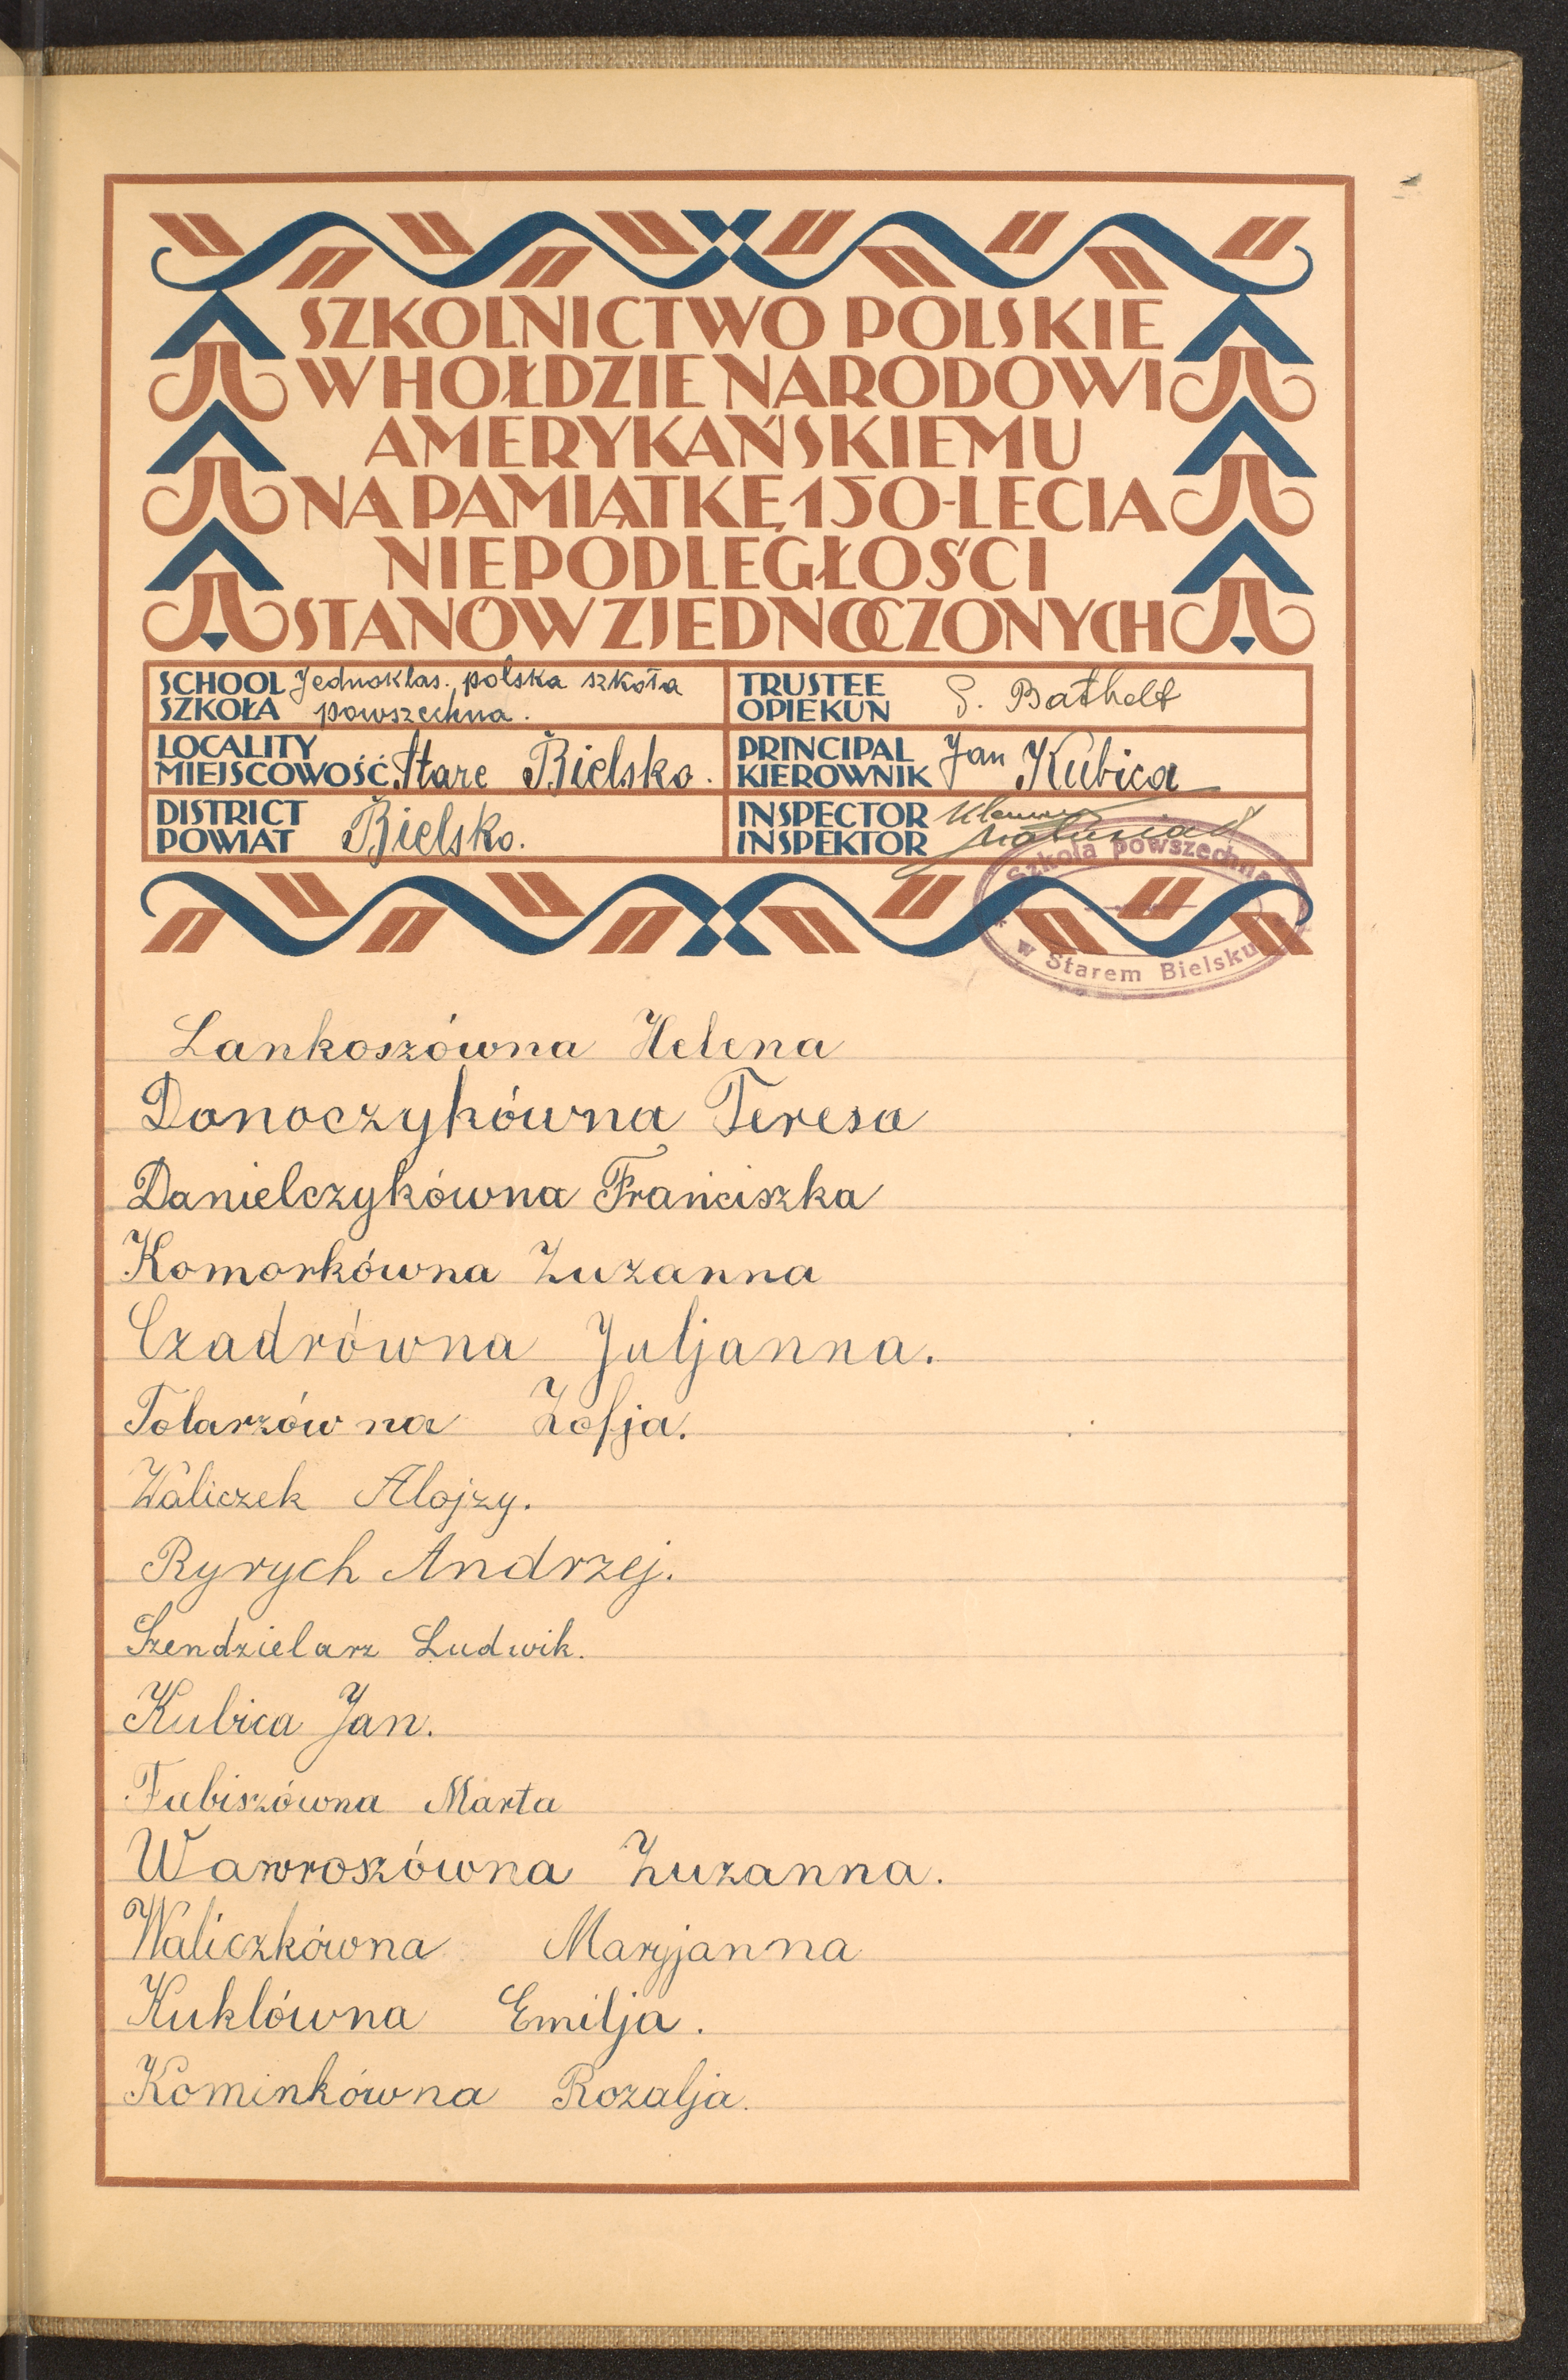 SZKOLNICTWO POLSKIE
W HOŁDZIE NARODOWI
AMERYKAŃSKIEMU
NA PAMIĄTKĘ 150-LECIA
NIEPODLEGŁOŚCI
STANÓW ZJEDNOCZONYCH
SCHOOL
SZKOŁA
Jednoklas. polska szkoła
powszechna.
TRUSTEE
OPIEKUN
Bathelt
LOCALITY
MIEJSCOWOŚĆ
Stare Bielsko.
PRINCIPAL
KIEROWNIK
Jan Kubica
DISTRICT
POWIAT
Bielsko.
INSPECTOR
INSPEKTOR
Szkoła powszechna
w Starem Bielsku
Lankoszówna Helena
Donoczykówna Teresa
Danielczykówna Franciszka
Komorkówna Zuzanna
Czadrówna Juljanna.
Tolarzówna Zofja.
Waliczek Alojzy.
Ryrych Andrzej.
Szendzielarz Ludwik.
Kubica Jan.
Fubiszówna Marta
Wawroszówna Zuzanna.
Waliczkówna Maryjanna
Kuklówna Emilja.
Kominkówna Rozalja.